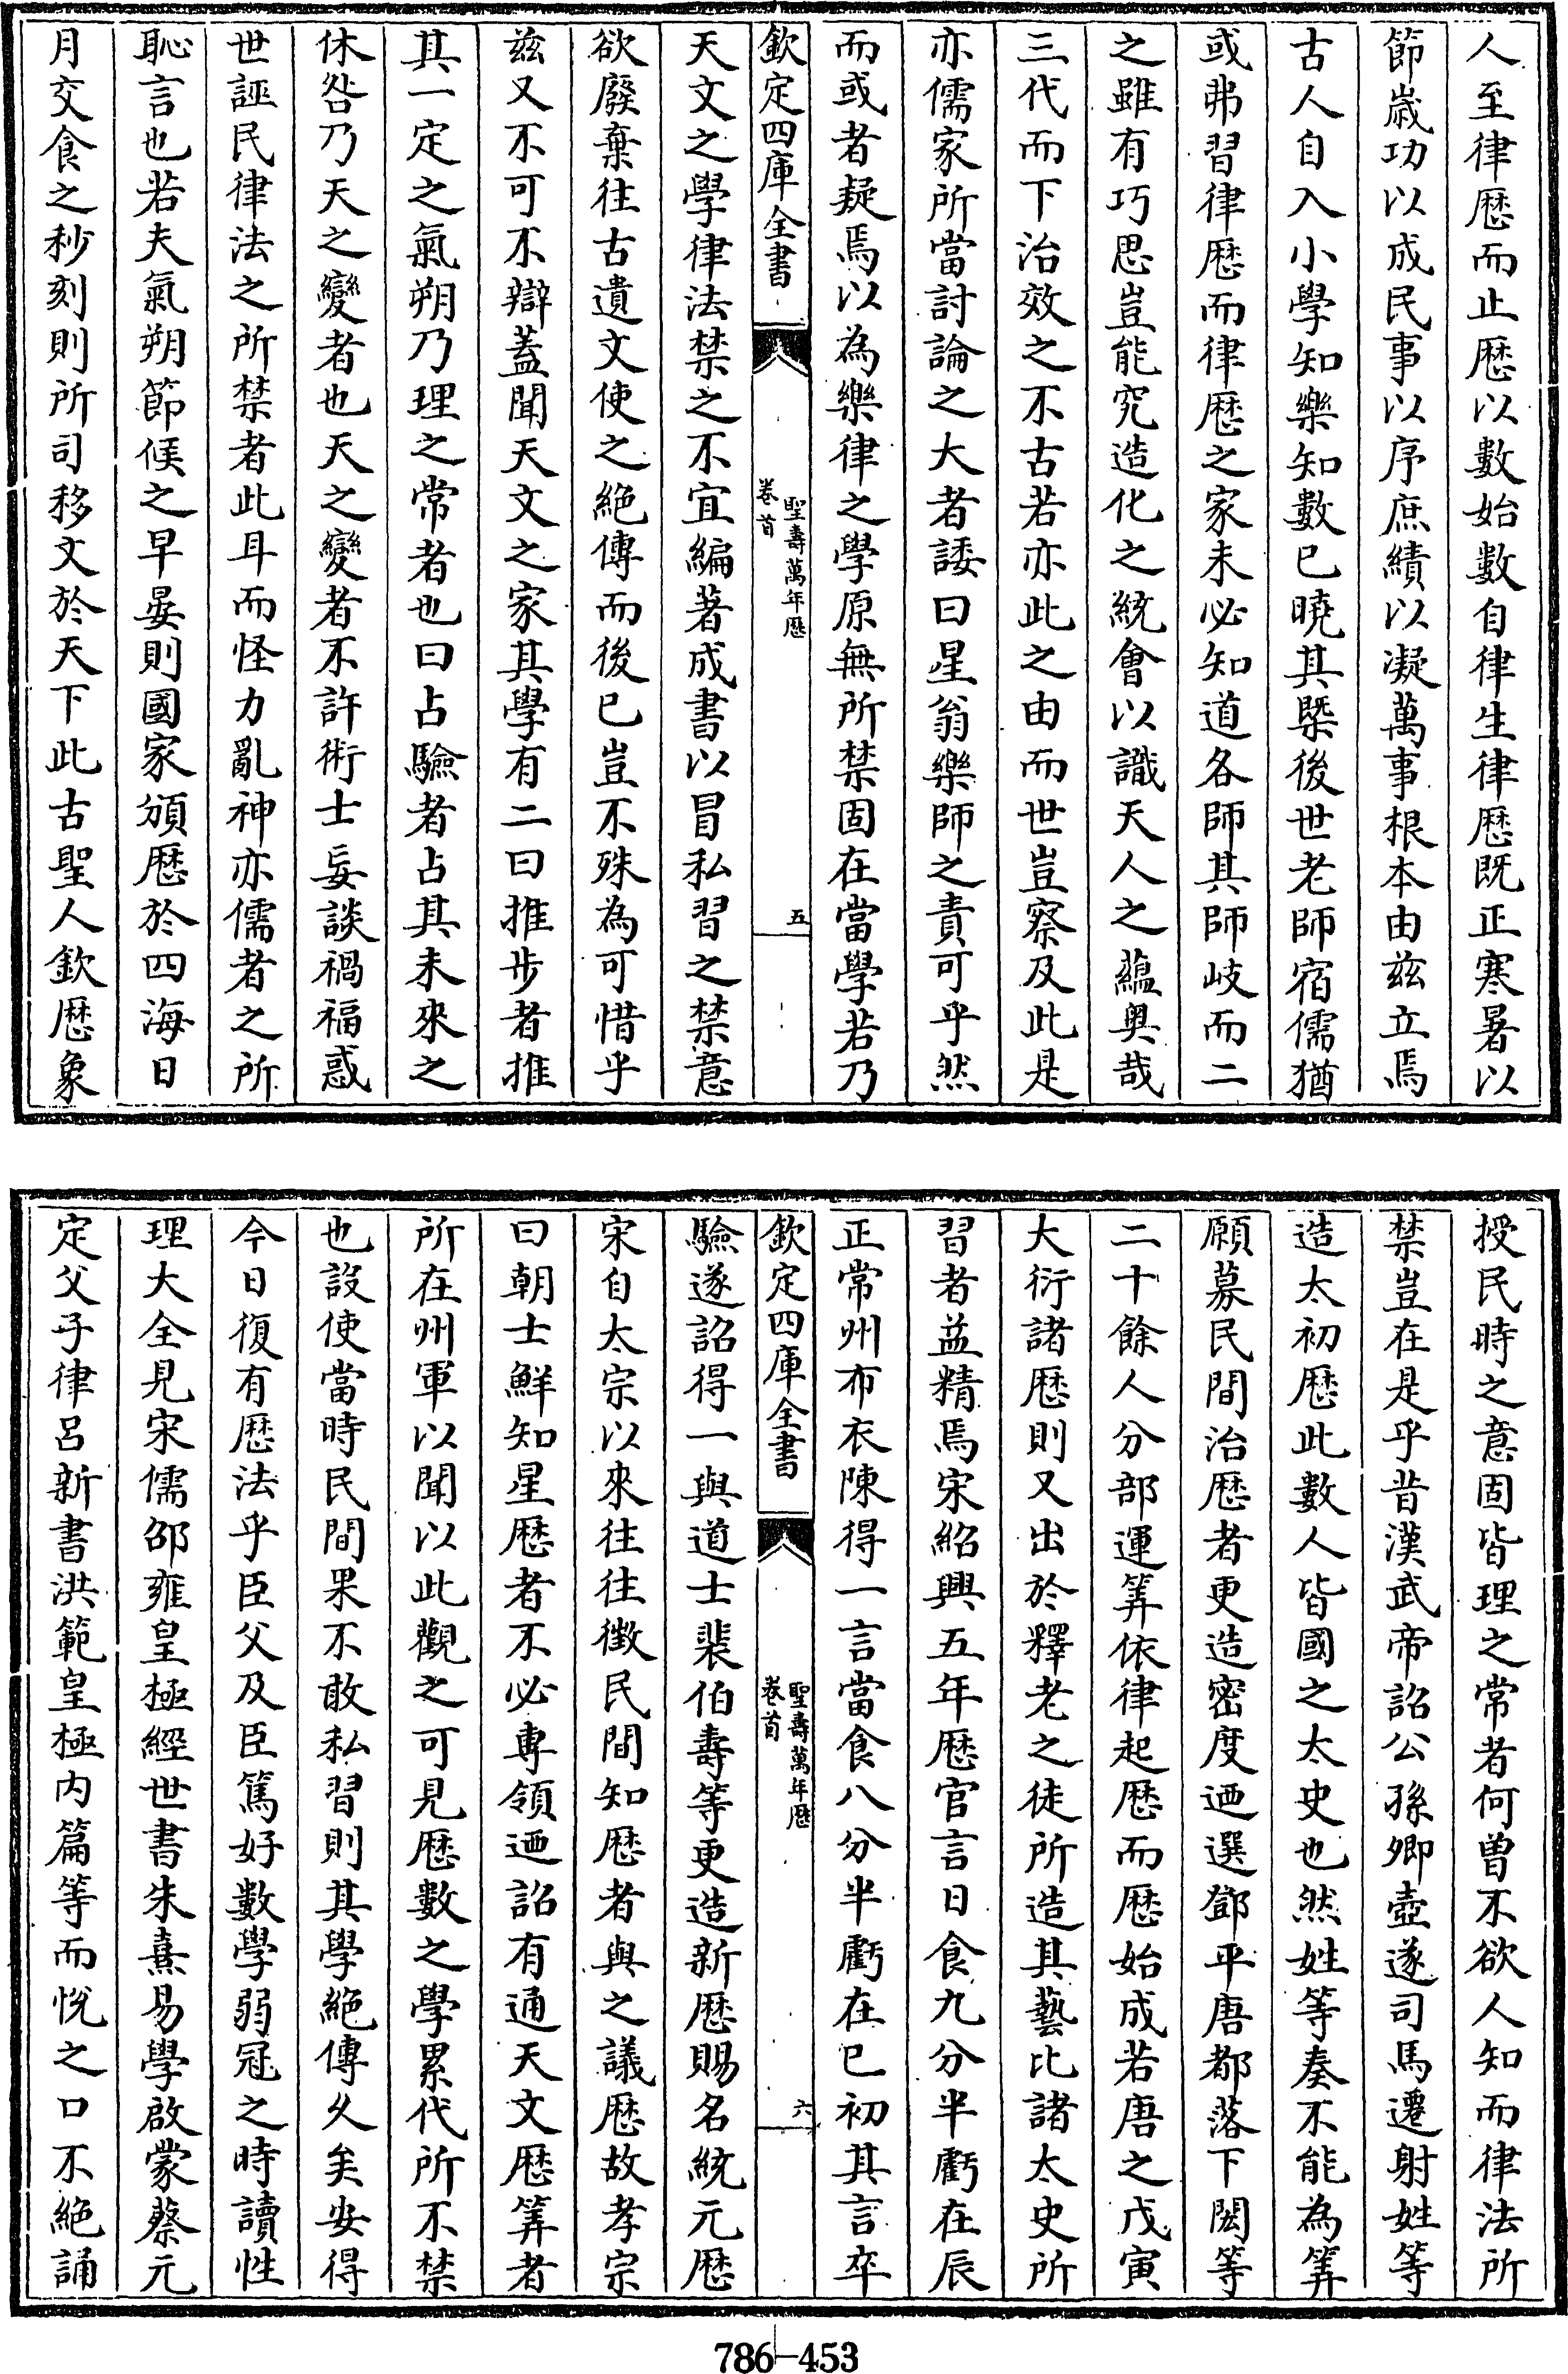 人至律歴而止歴以數始數自律生律歴既正寒暑以
節歲功以成民事以序庶績以凝萬事根本由兹立焉
古人自入小學知樂知數已曉其槩後世老師宿儒猶
或弗習律歴而律歴之家未必知道各師其師岐而二
之雖有巧思豈能究造化之統會以識天人之蘊奥哉
三代而下治效之不古若亦此之由而世豈察及此是
亦儒家所當討論之大者諉曰星翁樂師之責可乎然
而或者疑焉以為樂律之學原無所禁固在當學若乃
欽定四庫全書
聖壽萬年歴
卷首
五
天文之學律法禁之不宜編著成書以冒私習之禁意
欲廢棄往古遺文使之絶傳而後已豈不殊為可惜乎
兹又不可不辯蓋聞天文之家其學有二曰推步者推
其一定之氣朔乃理之常者也曰占驗者占其未來之
休咎乃天之變者也天之變者不許術士妄談禍福惑
世誣民律法之所禁者此耳而怪力亂神亦儒者之所
恥言也若夫氣朔節候之早晏則國家頒歴於四海日
月交食之秒刻則所司移文於天下此古聖人欽歴象
授民時之意固皆理之常者何曽不欲人知而律法所
禁豈在是乎昔漢武帝詔公孫卿壺遂司馬遷射姓等
造太初歴此數人皆國之太史也然姓等奏不能為筭
願募民間治歴者更造密度迺選鄧平唐都落下閎等
二十餘人分部運筭依律起歴而歴始成若唐之戊寅
大衍諸歴則又出於釋老之徒所造其藝比諸太史所
習者益精焉宋紹興五年歴官言日食九分半虧在辰
正常州布衣陳得一言當食八分半虧在巳初其言卒
欽定四庫全書
聖壽萬年歴
卷首
六
驗遂詔得一與道士裴伯壽等更造新歴賜名統元歴
宋自太宗以來往往徴民間知歴者與之議歴故孝宗
曰朝士鮮知星歴者不必専領迺詔有通天文歴筭者
所在州軍以聞以此觀之可見歴數之學累代所不禁
也設使當時民間果不敢私習則其學絶傳乆矣安得
今日復有歴法乎臣父及臣篤好數學弱冠之時讀性
理大全見宋儒邵雍皇極經世書朱熹易學啟蒙蔡元
定父子律吕新書洪範皇極内篇等而悅之口不絶誦
786-453